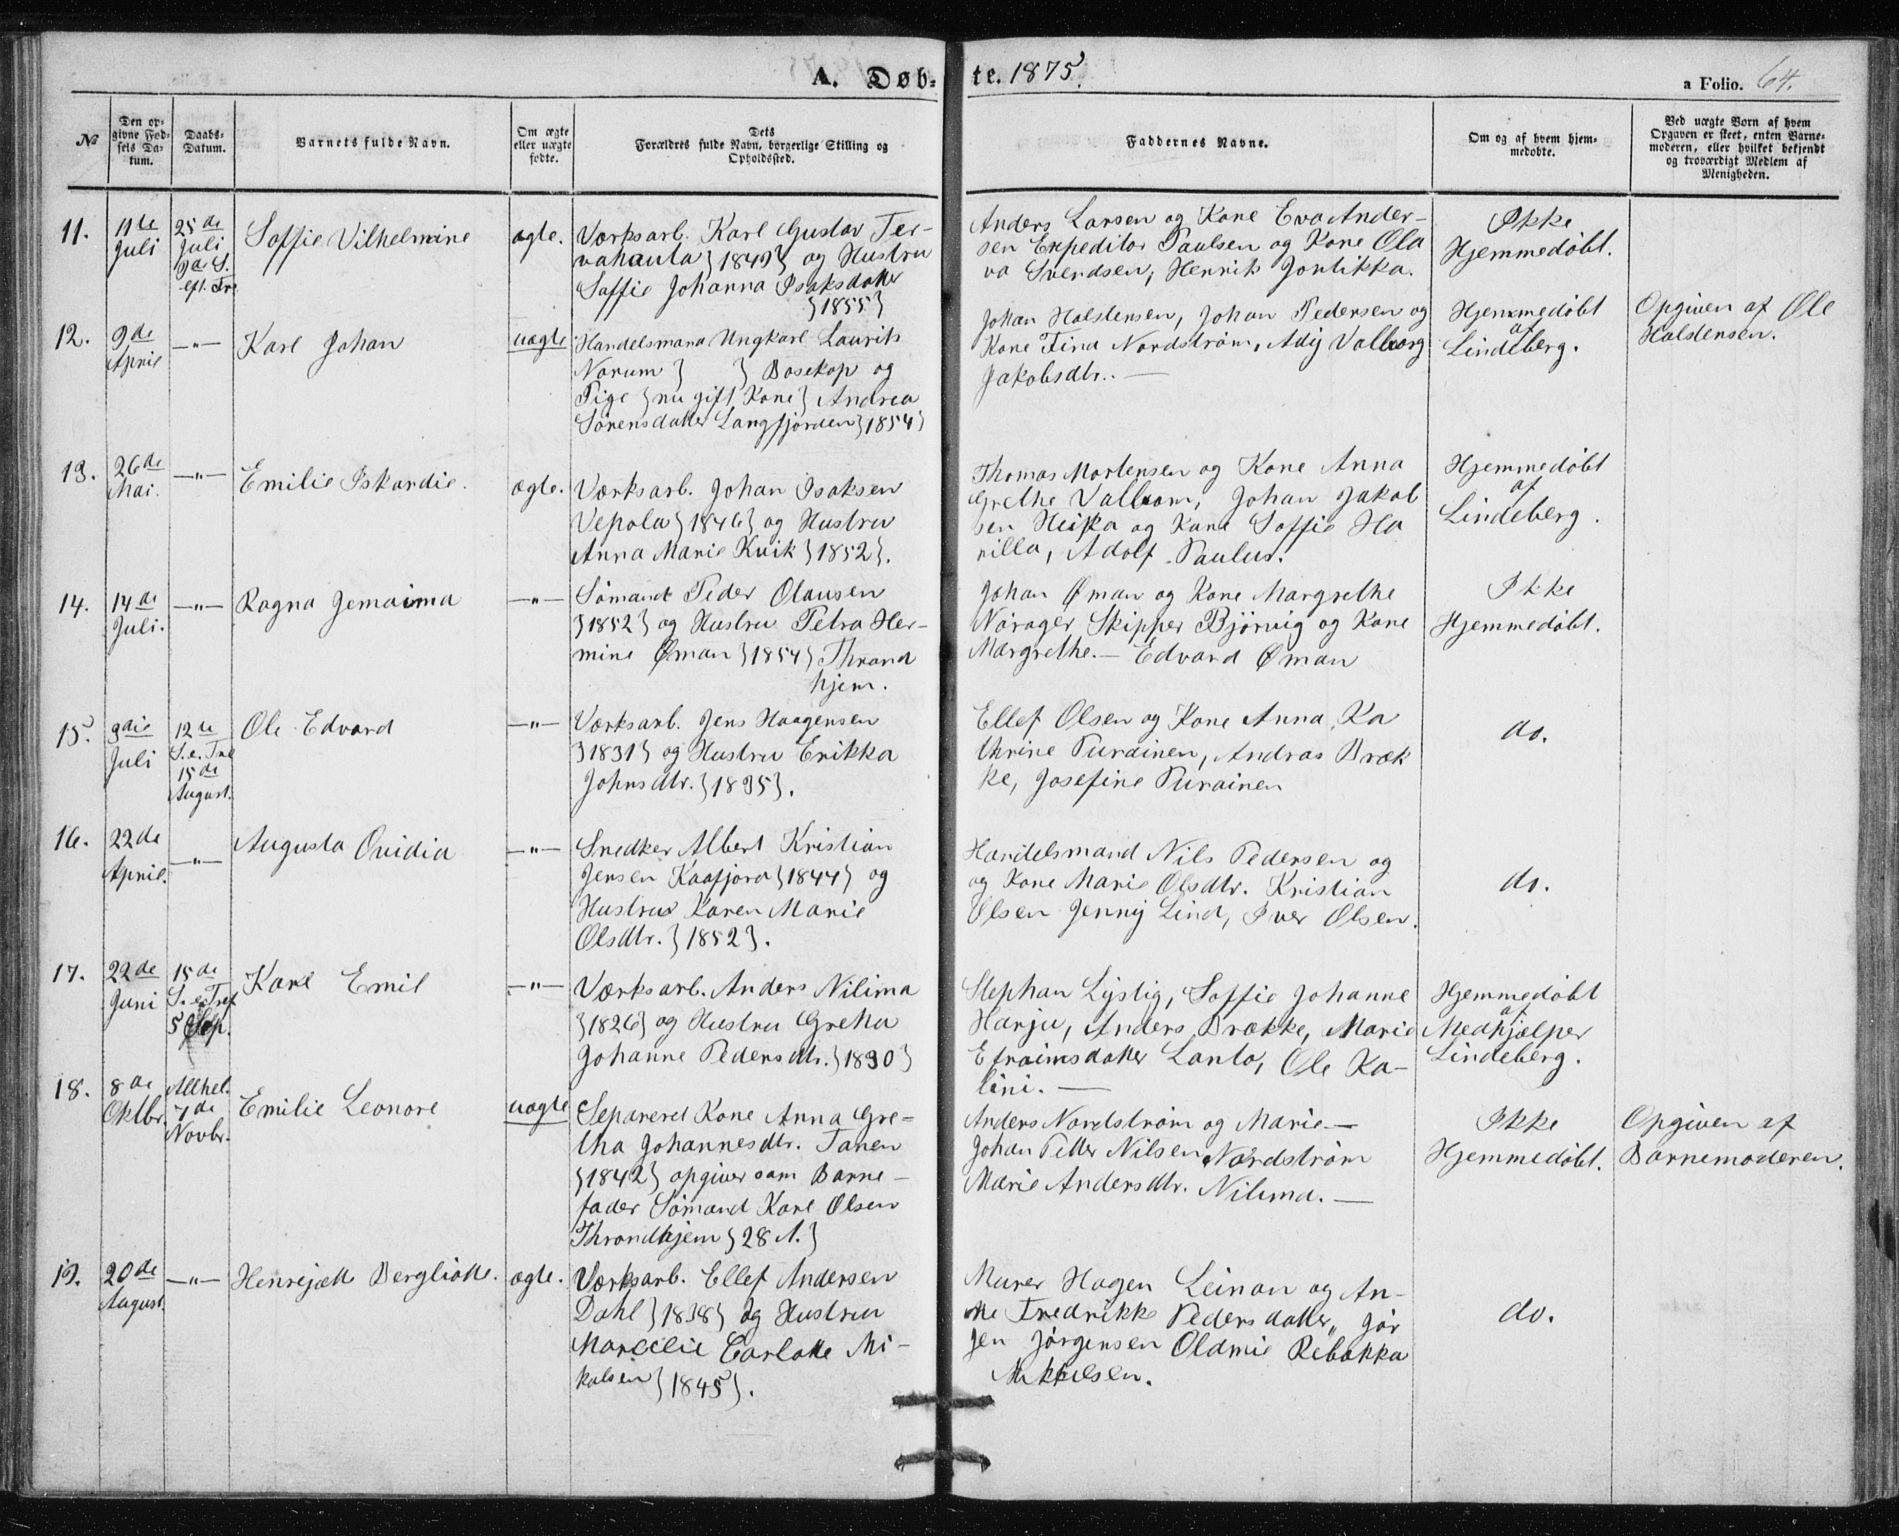 A. Døb- te. 1875. a Folio. 64.
№
Den opgivne Fødsels Datum.
Daabs-Datum.
Barnets fulde Navn.
Om ægte eller uægte fødte.
Dets Forældres fulde Navn, borgerlige Stilling og Opholdssted.
Faddernes Navne.
Om og af hvem hjemmedøbte.
Ved uægte Born af hvem Opgaven er skeet, enten Barnemoderen, eller hvilket bekjendt og troværdigt Medlem af Menigheden.
11.
11te
Juli
25de
Juli
9de S.
eft. Tre
Saffie Vilhelmine
ægte.
Værksarb. Karl Gustav Ter-
vahauta }1849} og Hustru
Saffie Johanna Isaksdatter
}1855}
Anders Larsen og Kone Eva Ander-
sen Expeditør Paulsen og Kone Ola
va Svendsen, Henrik Jontikka.
Ikke
Hjemmedøbt.
12.
9de
April
—"—
Karl Johan
uægte
Handelsmand Ungkarl Laurits
Norum } } Bosekop og
Pige }nu gift Kone} Andrea
Sørensdatter Langfjorden }1854}
Johan Halstensen, Johan Pedersen og
Kone Tina Nordstrøm, Ady Valborg
Jakobsdtr. —
Hjemmedøbt
af
Lindeberg.
Opgiven af Ole
Halstensen.
13.
26de
Mai.
—"—
Emilie Iskardie.
ægte.
Værksarb. Johan Isaksen
Vepola }1846} og Hustru
Anna Marie Kvik }1852}.
Thomas Mortensen og Kone Anna
Grethe, Johan Jakob
sen Heika og Kone Saffie Ha
rilla, Adolf Paulus.
Hjemmedøbt
af
Lindeberg.
14.
14de
Juli.
—"—
Ragna Jemaima
—"—
Sømand Peder Olausen
}1852} og Hustru Petra Her-
mine Øman }1854} Thrond
hjem.
Johan Øman og Kone Margrethe
Nørager Skipper Bjørvig og Kone
Margrethe. — Edvard Øman
Ikke
Hjemmedøbt.
15.
9die
Juli
12te
S. e. Tre
15de
August.
Ole Edvard
—"—
Værksarb. Jens Haagensen
}1831} og Hustru Erikka
Johnsdtr. }1835}.
Ellef Olsen og Kone Anna Ka
thrine Purainen, Andras Bræk
ke, Josefine Purainen
do.
16.
22de
April.
—"—
Augusta Ovidia
—"—
Snedker Albert Kristian
Jensen Kaafjord }1844} og
Hustru Karen Marie
Olsdtr. }1852}.
Handelsmand Nils Pedersen og
og Kone Marie Olsdtr. Kristian
Olsen Jenny Lind, Iver Olsen.
do.
17.
22de
Juni
15de
S. e. Tref
5 Sep.
Karl Emil
—"—
Værksarb. Anders Nilima
}1826} og Hustru Gretha
Johanne Pedersdtr. }1830}
Stephan Lystig, Saffie Johanne
Harju, Anders Brække, Marie
Efraimsdatter Lanto, Ole Ka-
lini. —
Hjemmedøbt
af
Medhjælper
Lindeberg.
18.
8de
Oktbr.
Allhel.
7de
Novbr.
Emilie Leonore
uægte
Separeret Kone Anna Gre-
tha Johannesdtr. Tanen
}1842} opgiver som Barne-
fader Sømand Karl Olsen
Throndhjem }28 A.}
Anders Nordstrøm og Marie —
Johan Petter Nilsen Nordstrøm
Marie Andersdtr. Nilima. —
Ikke
Hjemmedøbt.
Opgiven af
Barnemoderen.
19.
20de
August.
—"—
Henrejætte Bergliotte.
ægte.
Værksarb. Ellef Andersen
Dahl }1838} og Hustru
Marcelie Carlotte Mi-
kalsen }1845}.
Murer Hagen Leinan og An-
ne Fredrikke Pedersdatter, Jør
jen Jørgensen Oldmie Rebækka
Mikkelsen.
do.